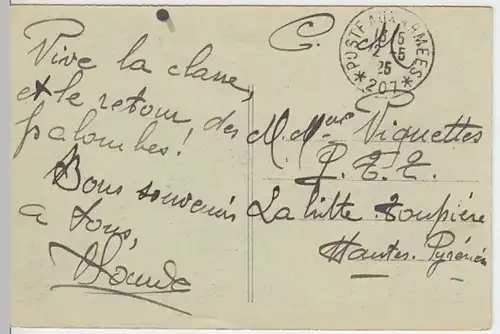 Vive la classe,
et le retour des
palombes!
Bons souvenirs
a tous,
C. M.
POSTE AUX ARMEES
15 5
2 - 5
25
* 207 *
M. Mme Viguettes
P. T. T.
Lahitte-Toupière
Hautes-Pyrénées